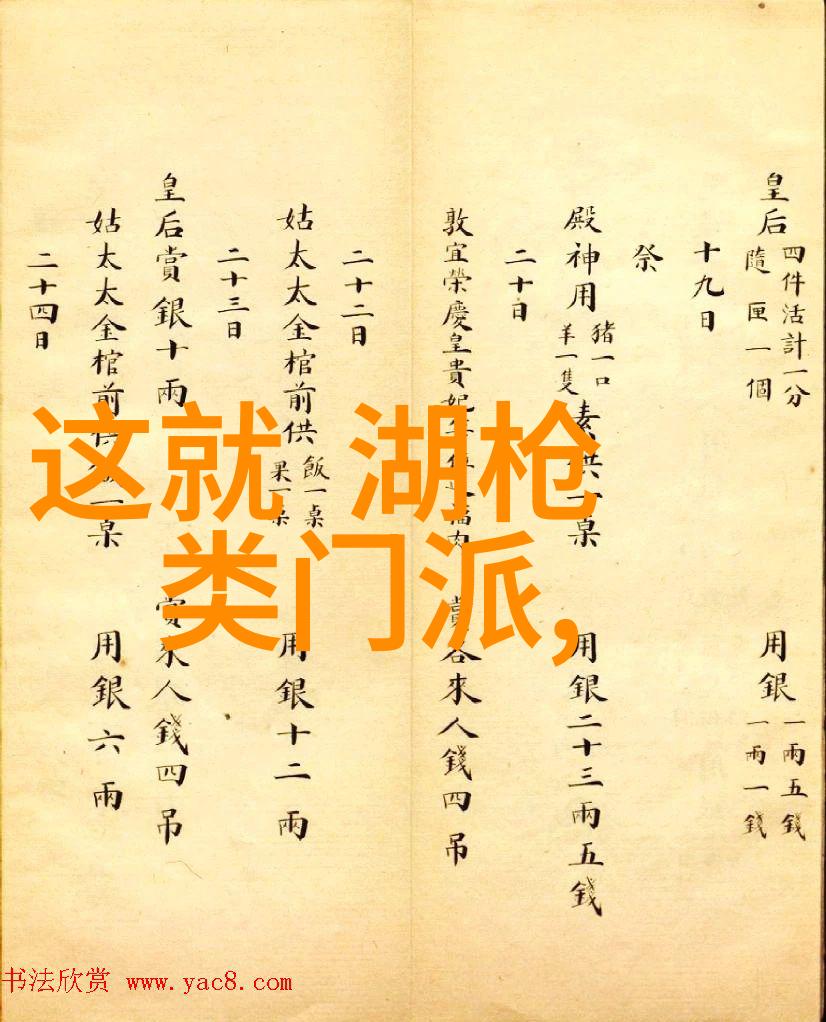 皇后 四件活計一分 用銀 一兩五錢
隨匣一個 一兩一錢
十九日
祭
殿神用 豬一口 素供一桌 用銀二十三兩五錢
羊一隻
二十日
敦宜榮慶皇貴妃 福肉 賞 來人錢四吊
二十二日
姑太太金棺前供 飯一桌 用銀十二兩
果一桌
二十三日
皇后賞銀十兩 賞來人錢四吊
姑太太金棺前供 一桌 用銀六兩
二十四日
这就 湖枪
类门派,
书法欣赏 www.yac8.com